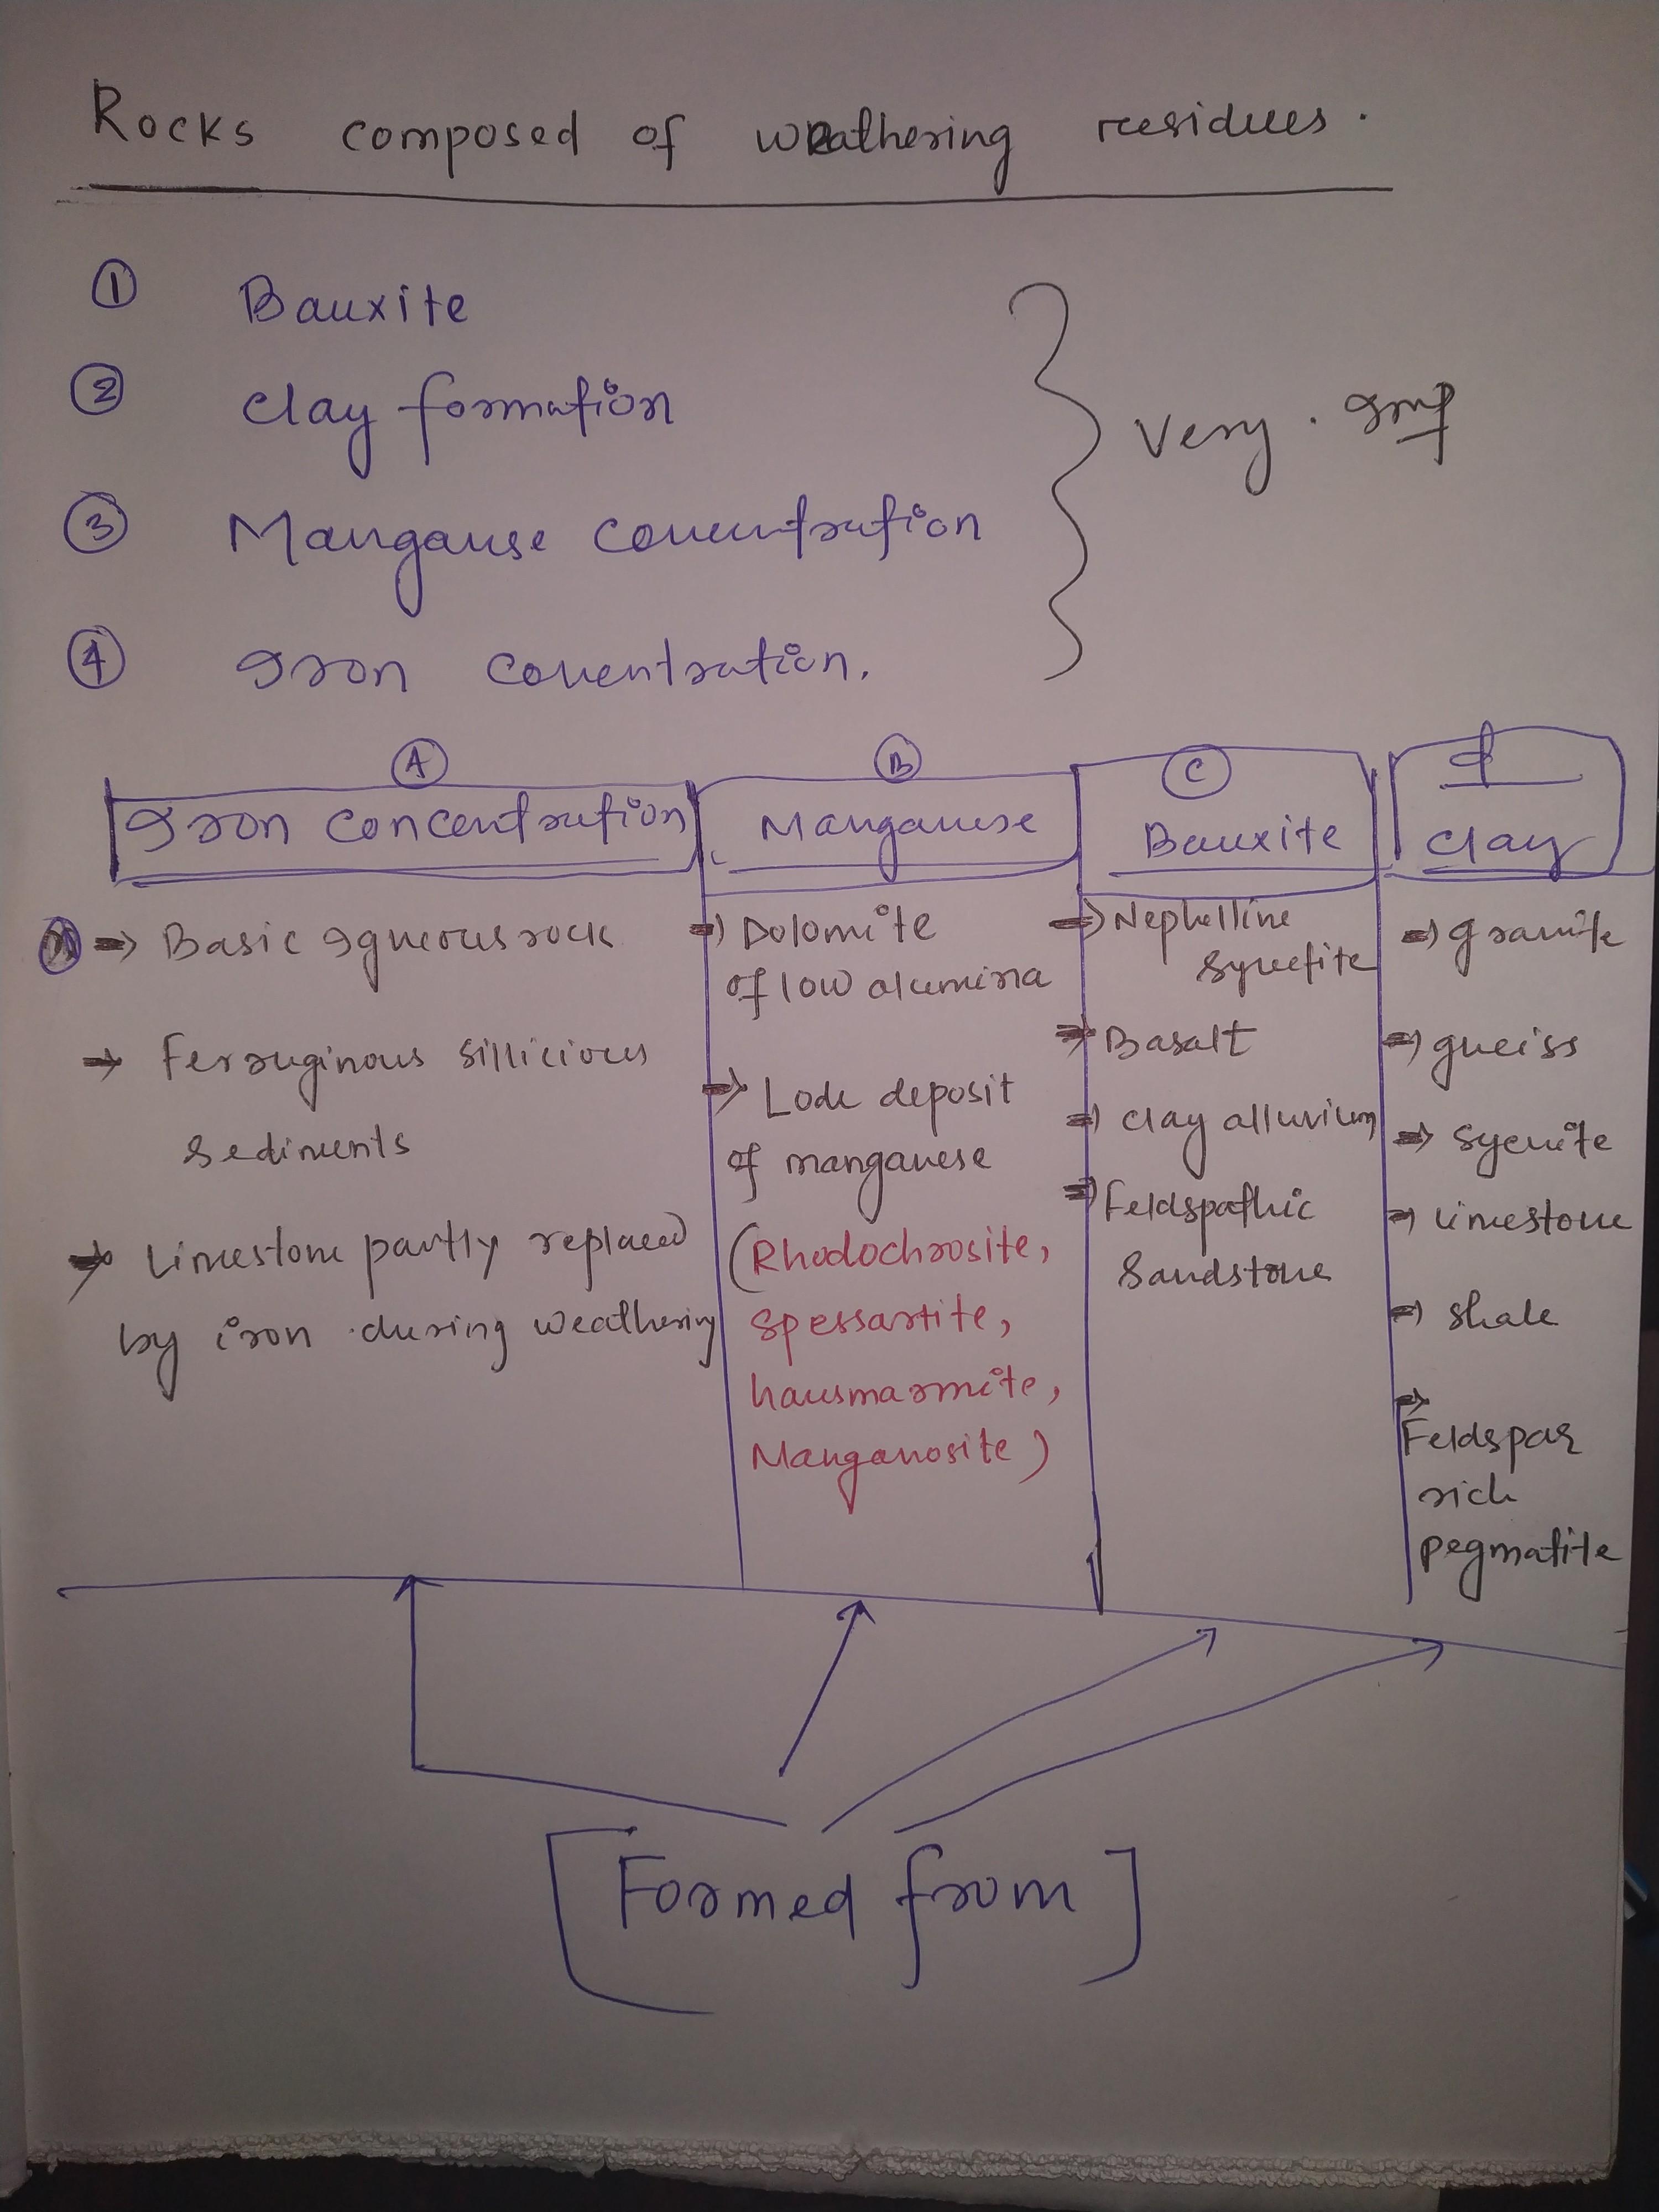 Rocks composed of weathering residues.
① Bauxite
② Clay formation
③ Manganese concentration
④ Iron concentration.
Very. Imp
Ⓐ
Iron Concentration
Ⓑ
Manganese
Ⓒ
Bauxite
d
Clay
⇒ Basic Igneous rock
⇒ Ferruginous sillicious
sediments
⇒ Limestone partly replaced
by iron during weathering
⇒ Dolomite
of low alumina
⇒ Lode deposit
of manganese
(Rhodochrosite,
spessartite,
hausmarmite,
Manganosite)
⇒ Nephelline
Syneftite
⇒ Basalt
⇒ Clay alluvium
⇒ Feldspathic
Sandstone
⇒ granite
⇒ gneiss
⇒ Syenite
⇒ limestone
⇒ shale
⇒
Feldspar
rich
pegmatite
[Formed from]